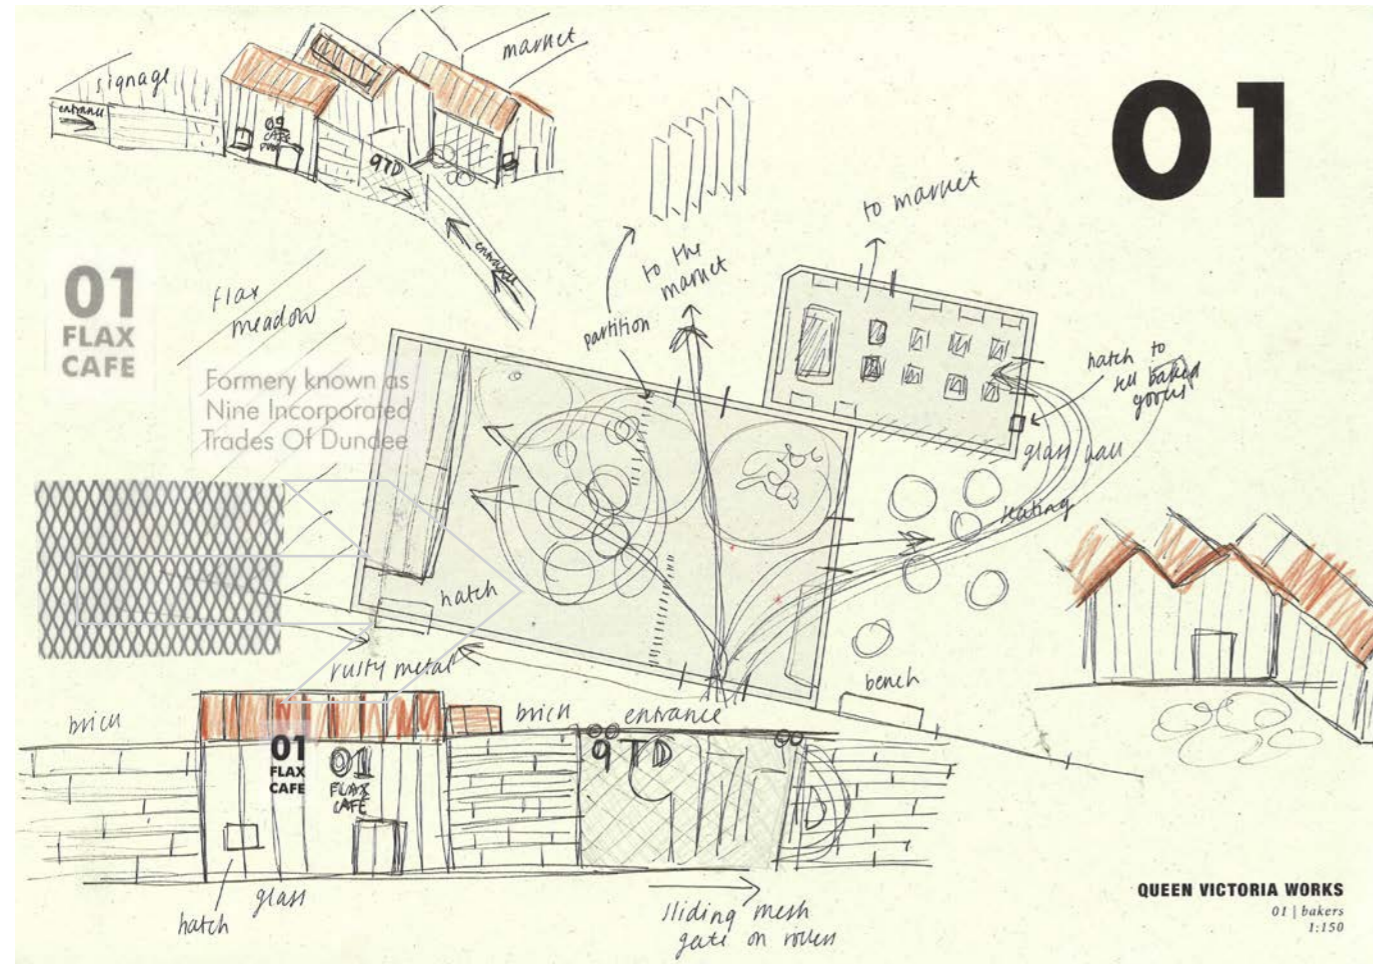 signage
market
entrance
09
CAFE
9TD
entrance
01
to market
to the
market
partition
hatch to
sell baked
goods
01
FLAX
CAFE
flax
meadow
Formery known as
Nine Incorporated
Trades Of Dundee
glass wall
seating
hatch
rusty metal
bench
brick
brick
entrance
01
FLAX
CAFE
01
FLAX
CAFE
9TD
glass
hatch
sliding mesh
gate on rollers
QUEEN VICTORIA WORKS
01 | bakers
1:150